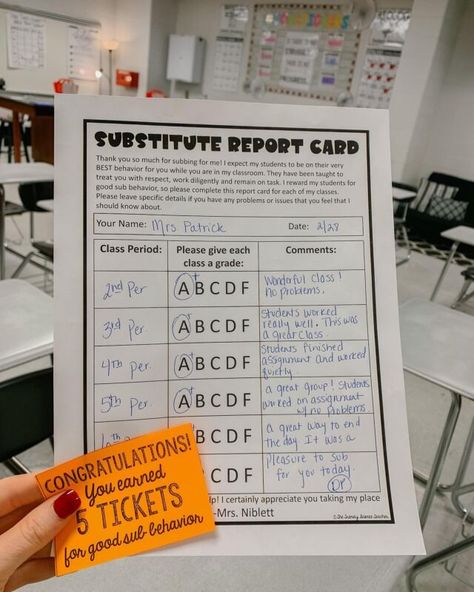 SUBSTITUTE REPORT CARD
Thank you so much for subbing for me! I expect my students to be on their very
BEST behavior for you while you are in my classroom. They have been taught to
treat you with respect, work diligently and remain on task. I reward my students for
good sub behavior, so please complete this report card for each of my classes.
Please leave specific details if you have any problems or issues that you feel that I
should know about.
Your Name: Mrs Patrick Date: 2/28
Class Period:
Please give each
class a grade:
Comments:
2nd Per
A+ B C D F
Wonderful class!
no problems.
3rd Per
A+ B C D F
Students worked
really well. This was
a great class
4th Per.
A+ B C D F
Students finished
assignment and worked
quietly.
5th Per
A+ B C D F
a great group! Students
worked on assignment
w/ no problems
B C D F
a great way to end
the day. It was a
B C D F
pleasure to sub
for you today.
DP
help! I certainly appreciate you taking my place
-Mrs. Niblett
CONGRATULATIONS!
You earned
5 TICKETS
for good sub behavior